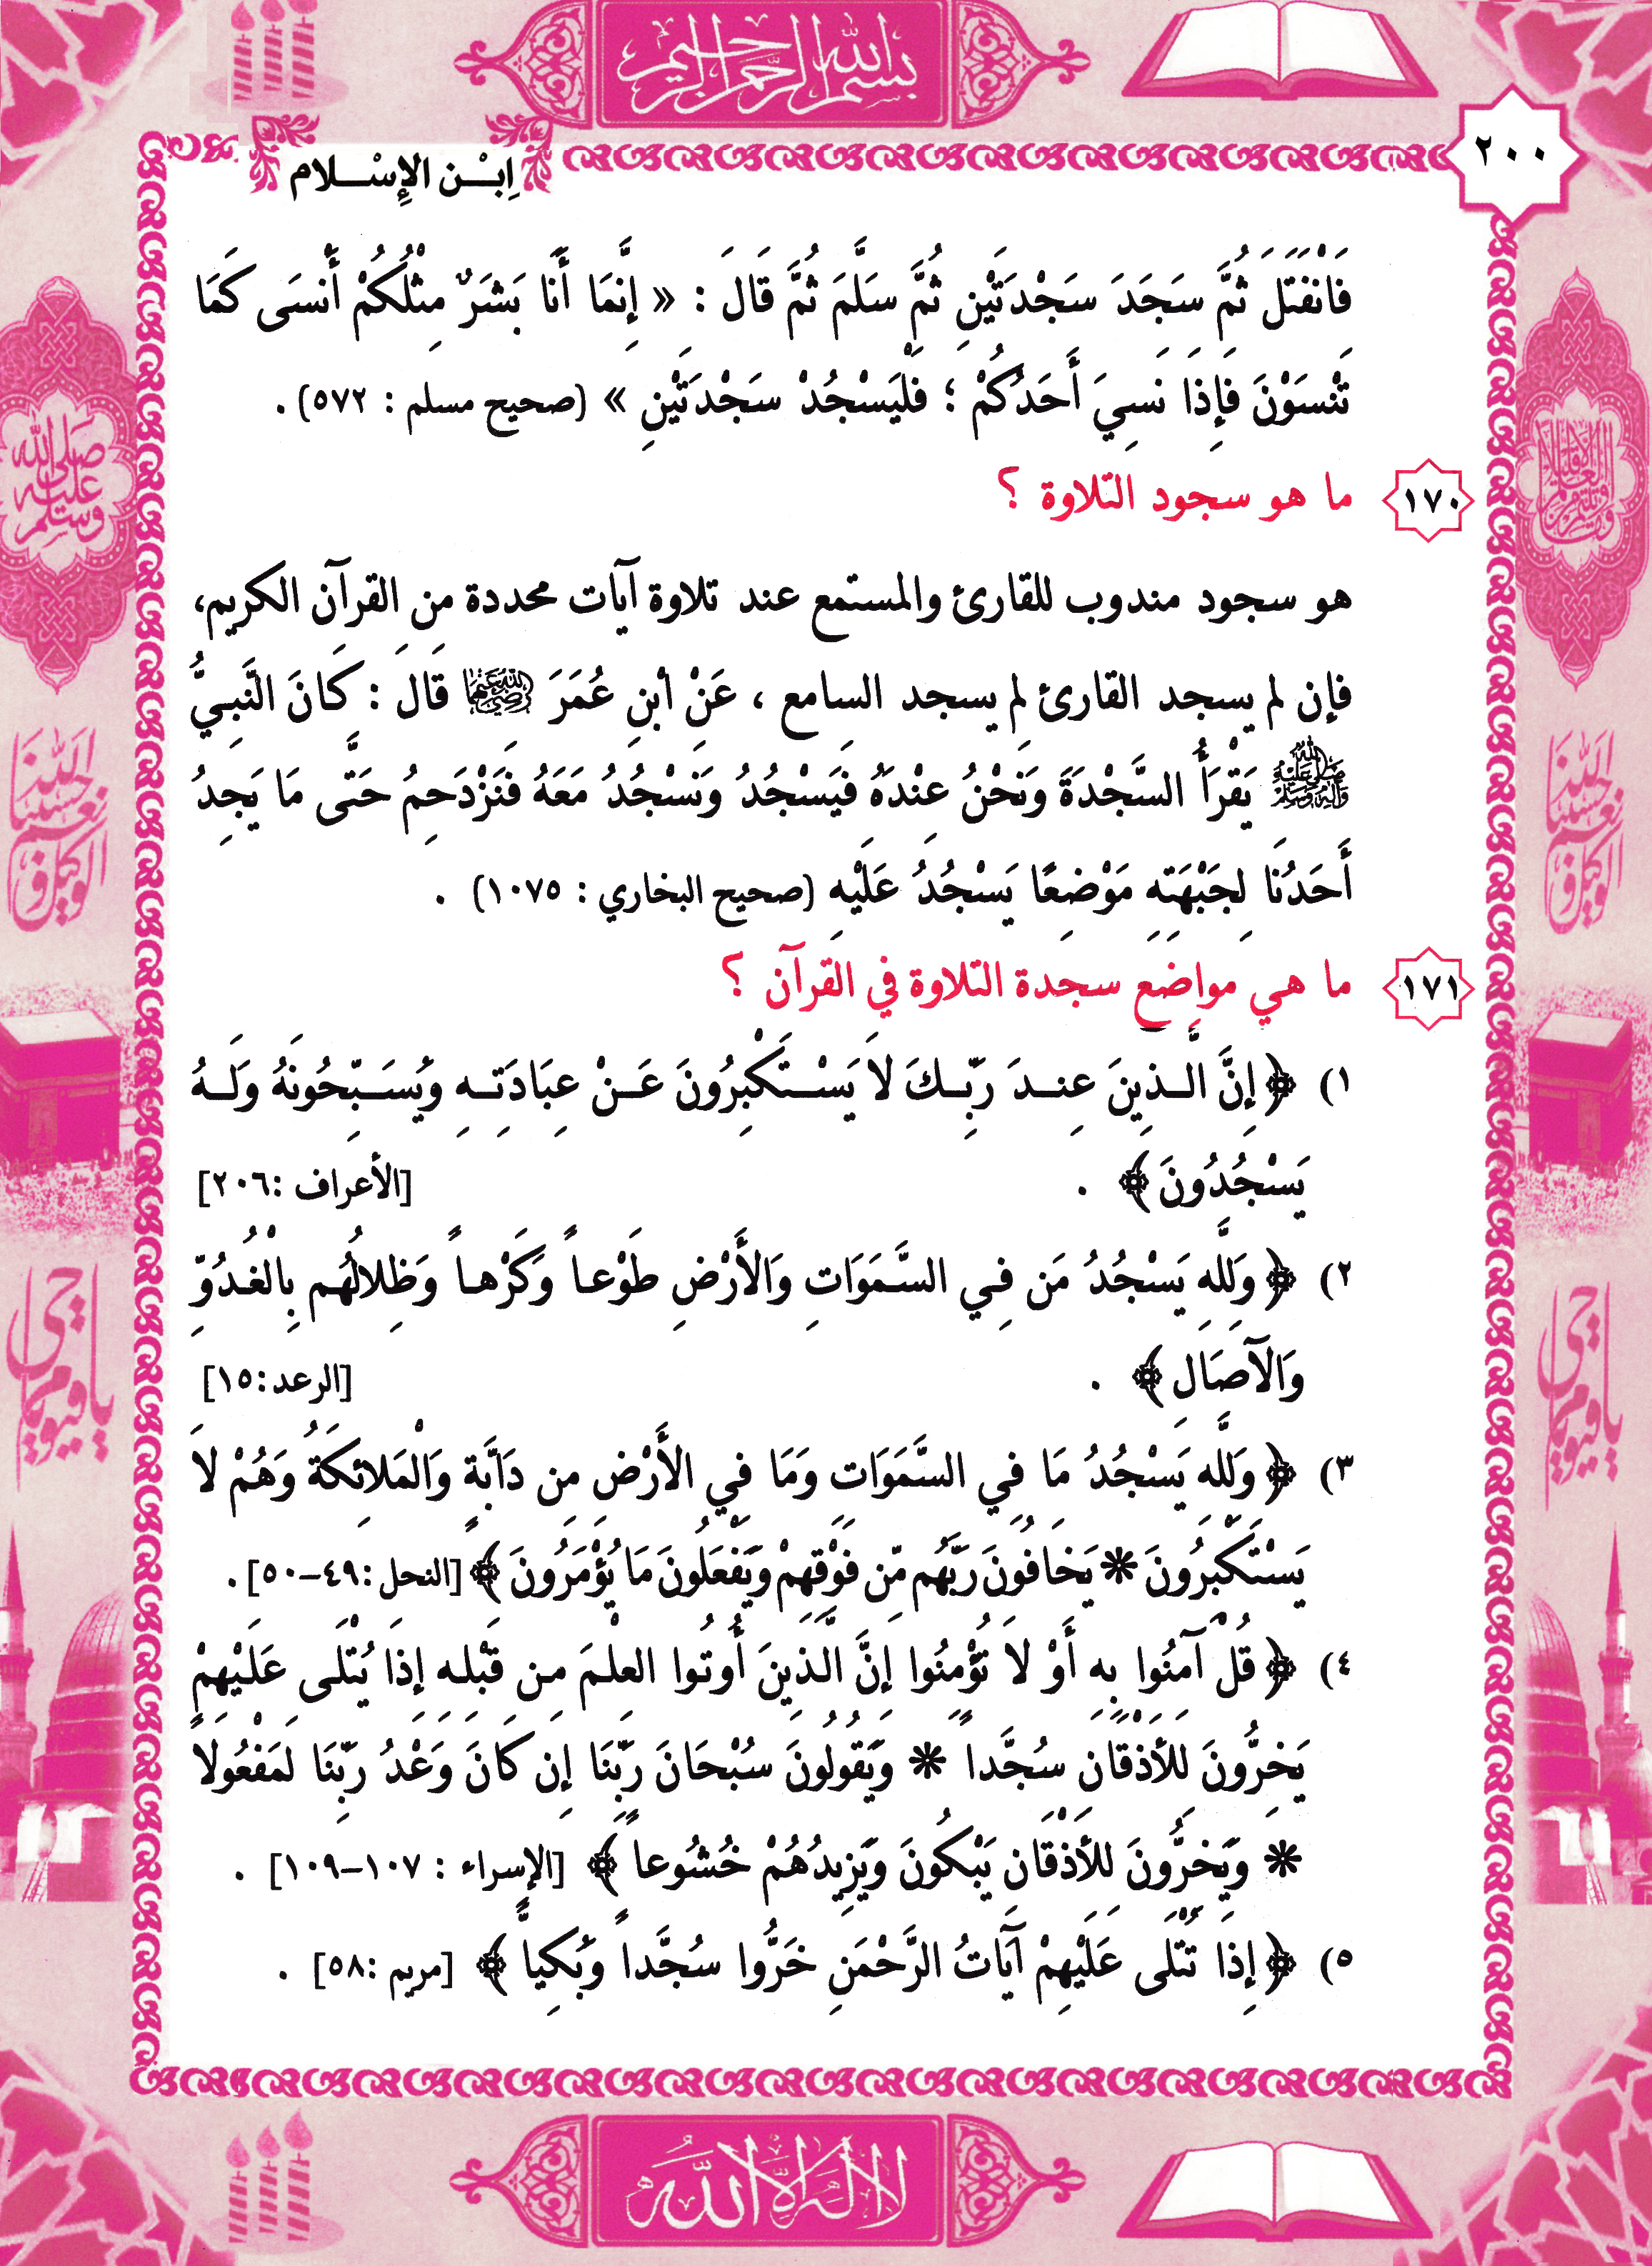 بسم الله الرحمن الرحيم
٢٠٠
اِبْـــن الإِسْـــلام
فَانْفَتَلَ ثُمَّ سَجَدَ سَجْدَتَيْنِ ثُمَّ سَلَّمَ ثُمَّ قَالَ : « إِنَّمَا أَنَا بَشَرٌ مِثْلُكُمْ أَنسَى كَمَا
تَنْسَوْنَ فَإِذَا نَسِيَ أَحَدُكُمْ ؛ فَلْيَسْجُدْ سَجْدَتَيْنِ » (صحيح مسلم : ٥٧٢) .
١٧٠ ما هو سجود التلاوة ؟
هو سجود مندوب للقارئ والمستمع عند تلاوة آيات محددة من القرآن الكريم،
فإن لم يسجد القارئ لم يسجد السامع ، عَنْ ابنِ عُمَرَ رضي الله عنهما قَالَ : كَانَ النَّبِيُّ
صلى الله عليه وآله وسلم يَقْرَأُ السَّجْدَةَ وَنَحْنُ عِنْدَهُ فَيَسْجُدُ وَنَسْجُدُ مَعَهُ فَنَزْدَحِمُ حَتَّى مَا يَجِدُ
أَحَدُنَا لِجَبْهَتِهِ مَوْضِعًا يَسْجُدُ عَلَيْهِ (صحيح البخاري : ١٠٧٥) .
١٧١ ما هي مواضع سجدة التلاوة في القرآن ؟
١) ﴿إِنَّ الَّـذِينَ عِنـدَ رَبِّـكَ لاَ يَسْـتَكْبِرُونَ عَـنْ عِبَادَتِـهِ وَيُسَـبِّحُونَهُ وَلَـهُ
يَسْجُدُونَ﴾ . [الأعراف :٢٠٦]
٢) ﴿وَلِلَّهِ يَسْجُدُ مَن فِي السَّمَوَاتِ وَالأَرْضِ طَوْعاً وَكَرْهاً وَظِلالُهُم بِالْغُدُوِّ
وَالآصَالِ﴾ . [الرعد:١٥]
٣) ﴿وَلِلَّهِ يَسْجُدُ مَا فِي السَّمَوَاتِ وَمَا فِي الأَرْضِ مِن دَآبَّةٍ وَالْمَلائِكَةُ وَهُمْ لاَ
يَسْتَكْبِرُونَ * يَخَافُونَ رَبَّهُم مِّن فَوْقِهِمْ وَيَفْعَلُونَ مَا يُؤْمَرُونَ﴾ [النحل:٤٩-٥٠] .
٤) ﴿قُلْ آمِنُوا بِهِ أَوْ لاَ تُؤْمِنُوا إِنَّ الَّذِينَ أُوتُوا العِلْمَ مِن قَبْلِهِ إِذَا يُتْلَى عَلَيْهِمْ
يَخِرُّونَ لِلأَذْقَانِ سُجَّداً * وَيَقُولُونَ سُبْحَانَ رَبِّنَا إِن كَانَ وَعْدُ رَبِّنَا لَمَفْعُولاً
* وَيَخِرُّونَ لِلأَذْقَانِ يَبْكُونَ وَيَزِيدُهُمْ خُشُوعاً ﴾ [الإسراء : ١٠٧-١٠٩] .
٥) ﴿إِذَا تُتْلَى عَلَيْهِمْ آيَاتُ الرَّحْمَنِ خَرُّوا سُجَّداً وَبُكِياًّ ﴾ [مريم :٥٨] .
صلى الله عليه وسلم
حسبنا الله ونعم الوكيل
حسبنا الله ونعم الوكيل
يا حي يا قيوم
يا حي يا قيوم
لا إله إلا الله